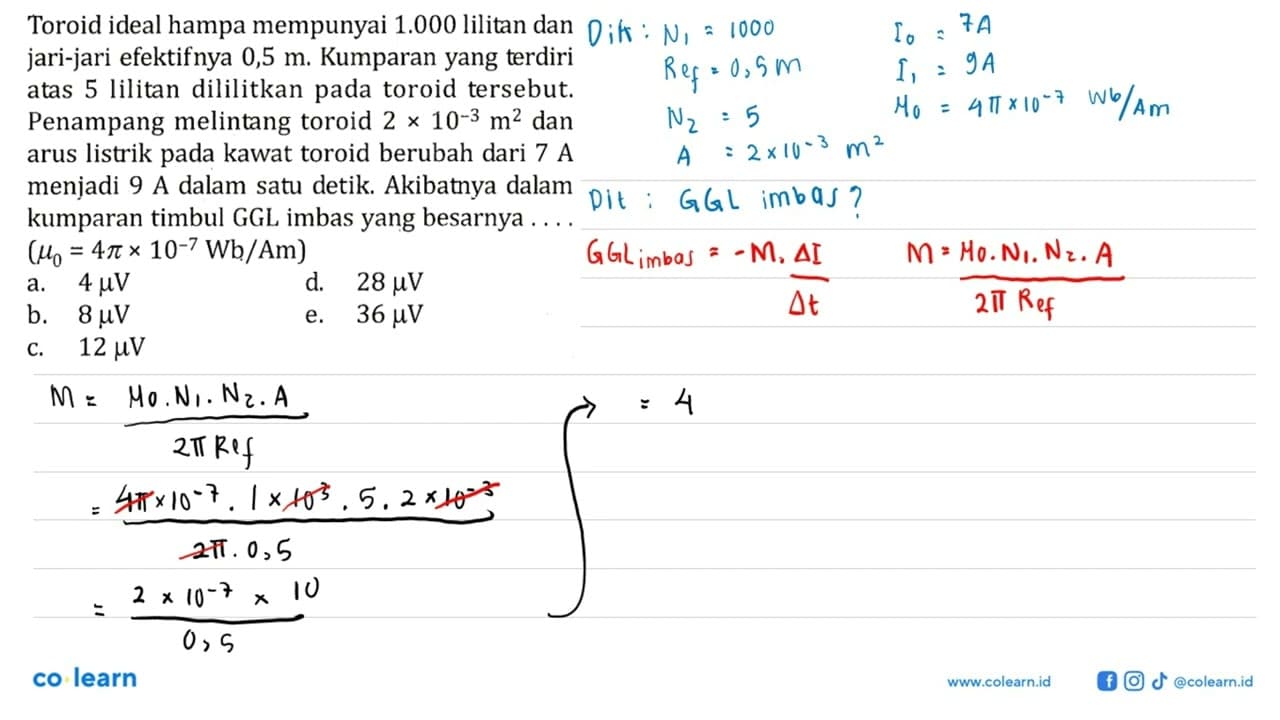 Toroid ideal hampa mempunyai 1.000 lilitan dan
jari-jari efektifnya 0,5 m. Kumparan yang terdiri
atas 5 lilitan dililitkan pada toroid tersebut.
Penampang melintang toroid 2 × 10⁻³ m² dan
arus listrik pada kawat toroid berubah dari 7 A
menjadi 9 A dalam satu detik. Akibatnya dalam
kumparan timbul GGL imbas yang besarnya . . . .
(μ₀ = 4π × 10⁻⁷ Wb/Am)
a. 4 μV d. 28 μV
b. 8 μV e. 36 μV
c. 12 μV
Dik : N₁ = 1000 I₀ = 7A
Ref = 0,5 m I₁ = 9A
N₂ = 5 μ₀ = 4π × 10⁻⁷ Wb/Am
A = 2 × 10⁻³ m²
Dit : GGL imbas?
GGL imbas = -M. ΔI/Δt M = μ₀.N₁.N₂.A / 2π Ref
M = μ₀.N₁.N₂.A / 2π Ref
= 4π × 10⁻⁷ . 1 × 10³ . 5 . 2 × 10⁻³ / 2π . 0,5
= 2 × 10⁻⁷ × 10 / 0,5
= 4
co learn
www.colearn.id
@colearn.id